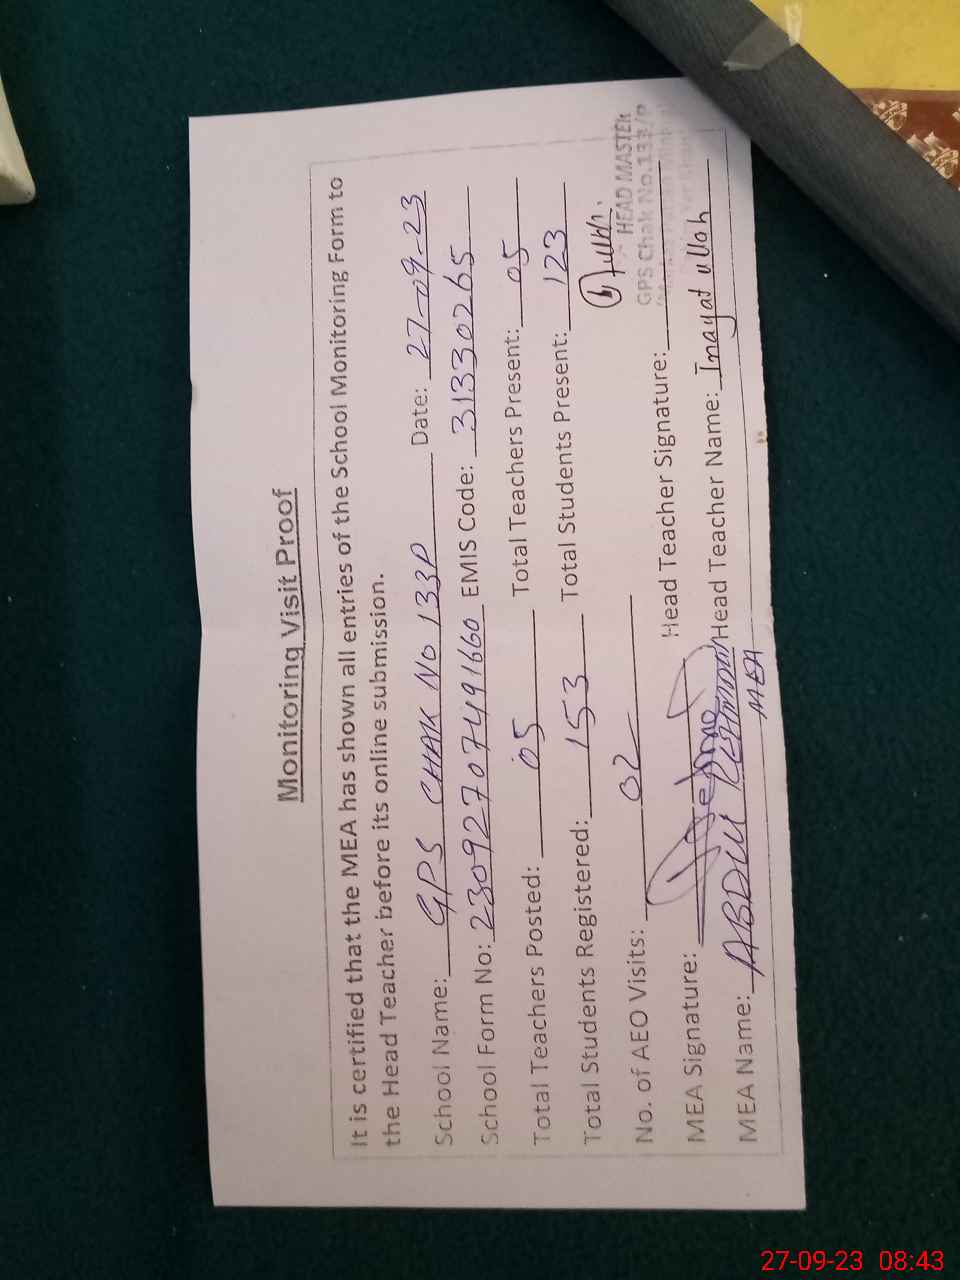 Monitoring Visit Proof
It is certified that the MEA has shown all entries of the School Monitoring Form to
the Head Teacher before its online submission.
School Name: GPS CHAK No 133P Date: 27-09-23
School Form No: 23092707491660 EMIS Code: 31330265
Total Teachers Posted: 05 Total Teachers Present: 05
Total Students Registered: 153 Total Students Present: 123
No. of AEO Visits: 02
HEAD MASTER
GPS Chak No.133/P
MEA Signature: Head Teacher Signature:
MEA Name: ABDUL REHMAN Head Teacher Name: Inayat ullah
MEA
27-09-23 08:43